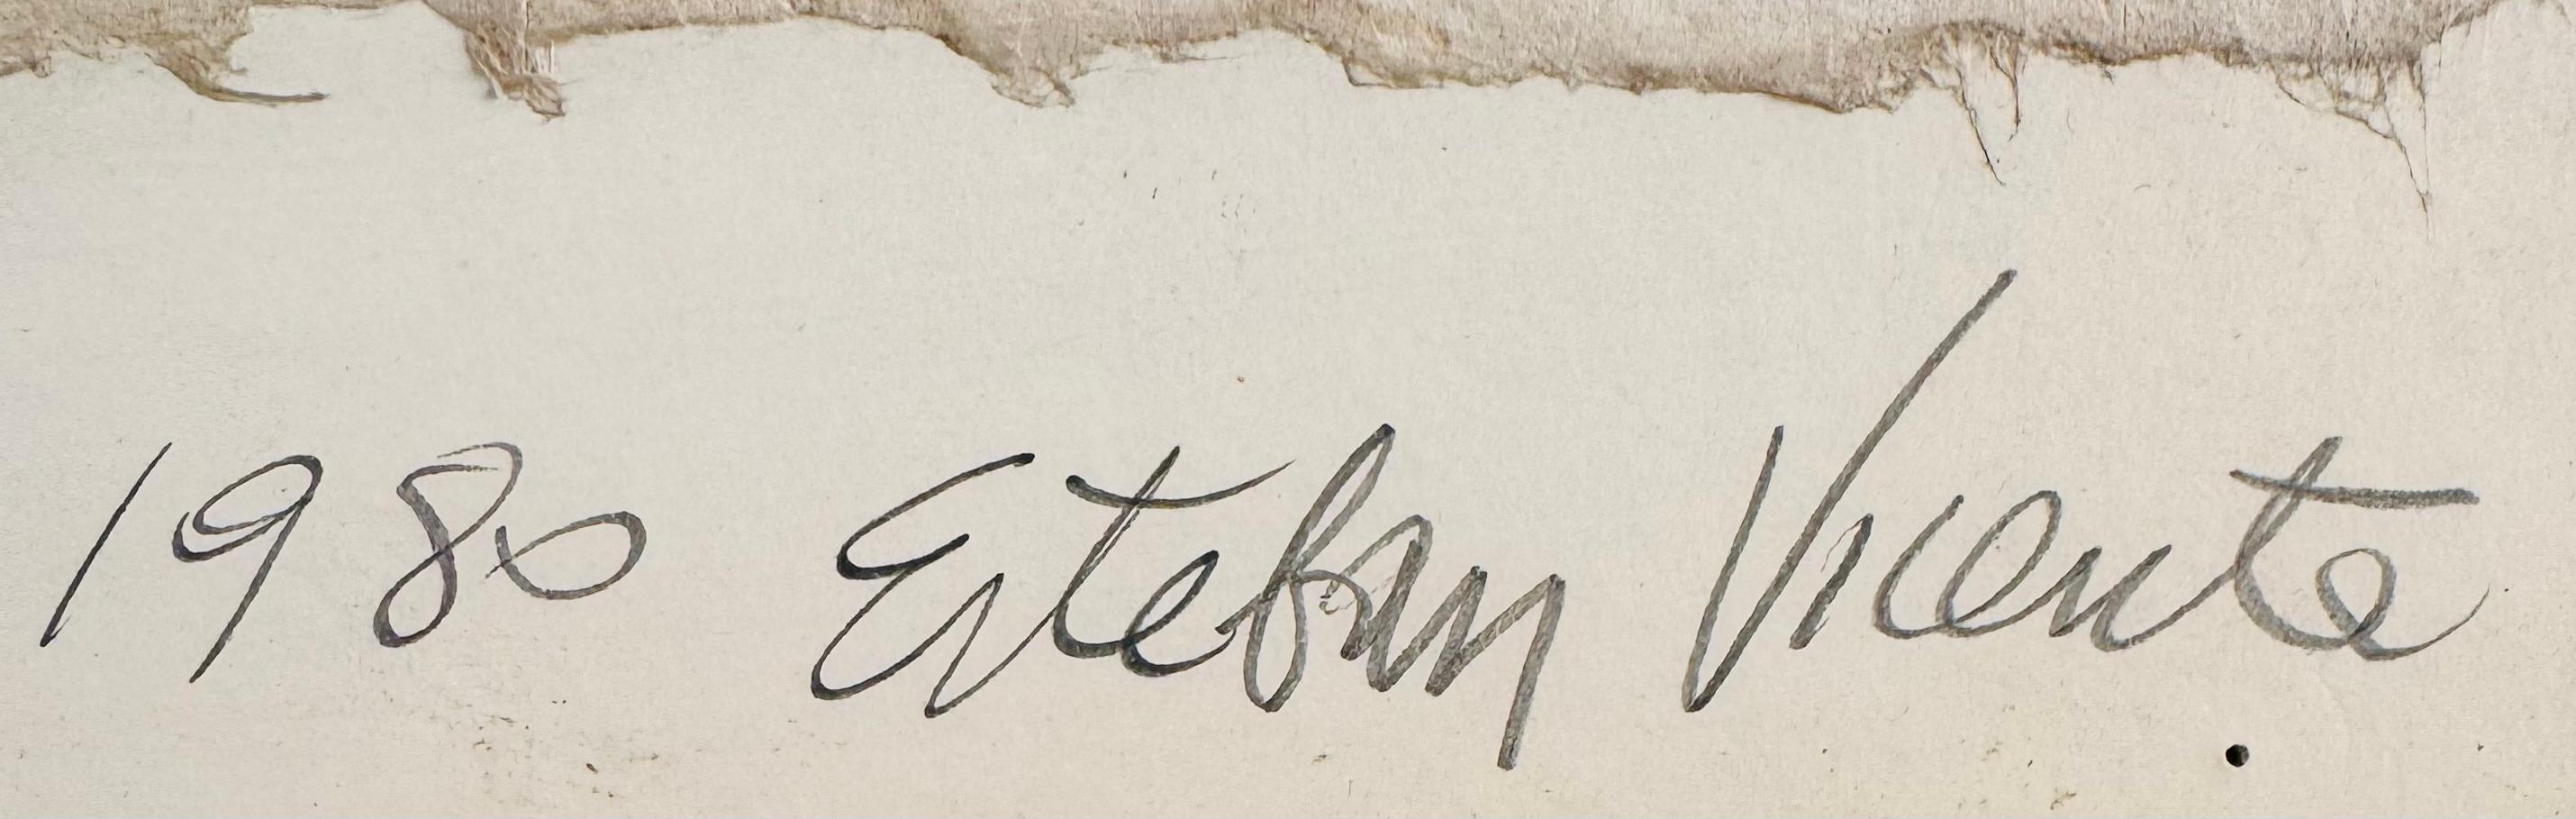 1980 Esteban Vicente